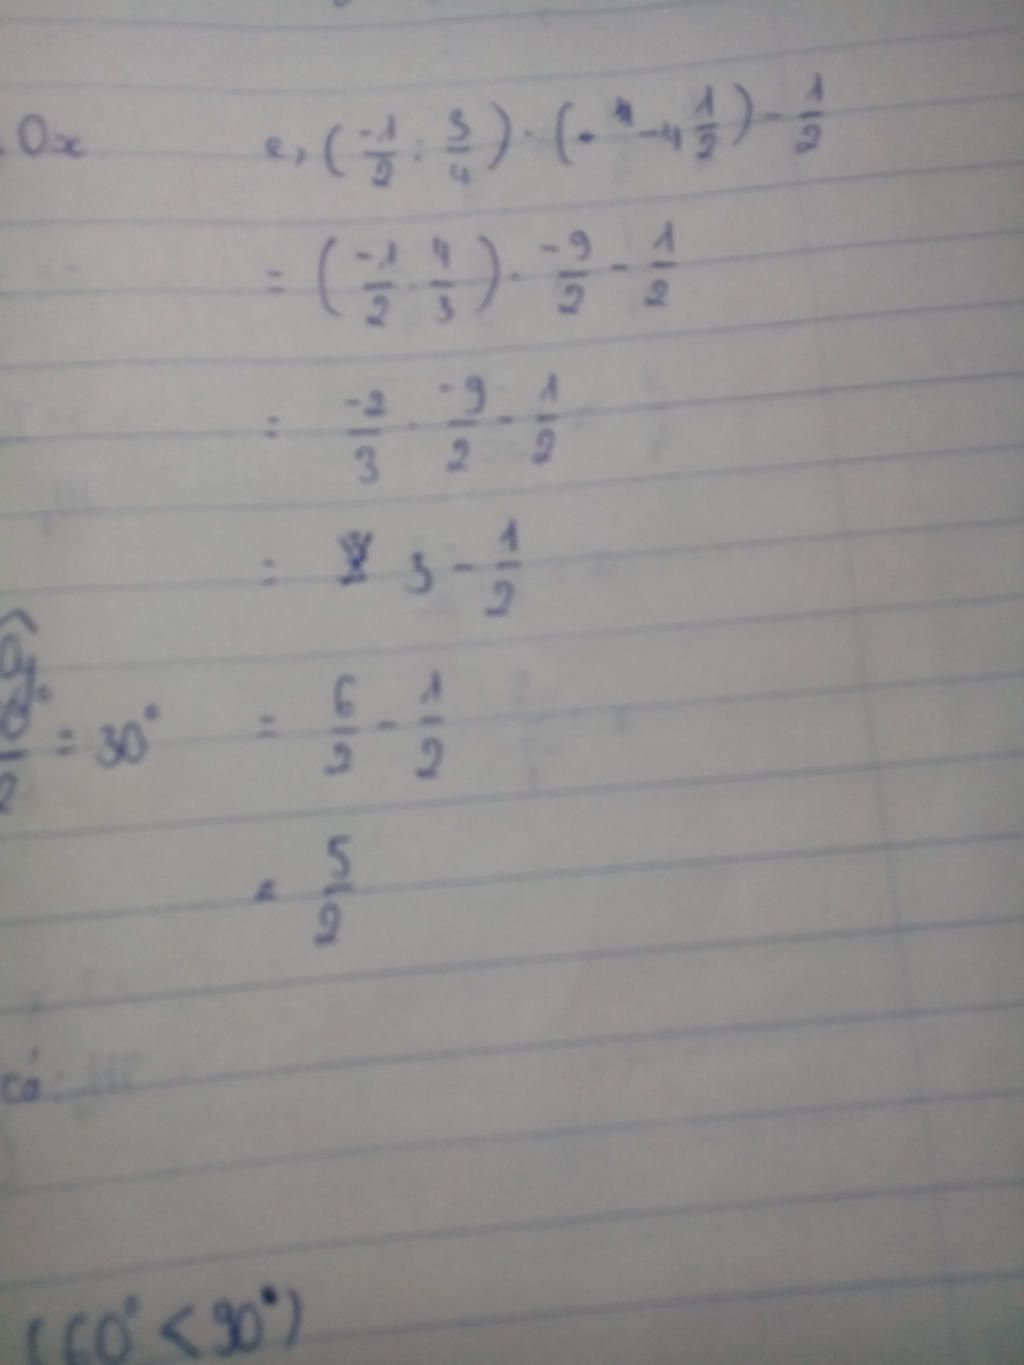 Ox
e, (-1/2 : 3/4) · (-4 1/2) - 1/2
= (-1/2 · 4/3) · -9/2 - 1/2
= -2/3 · -9/2 - 1/2
= 3 - 1/2
2 = 30° = 6/2 - 1/2
= 5/2
có:
(60° < 90°)